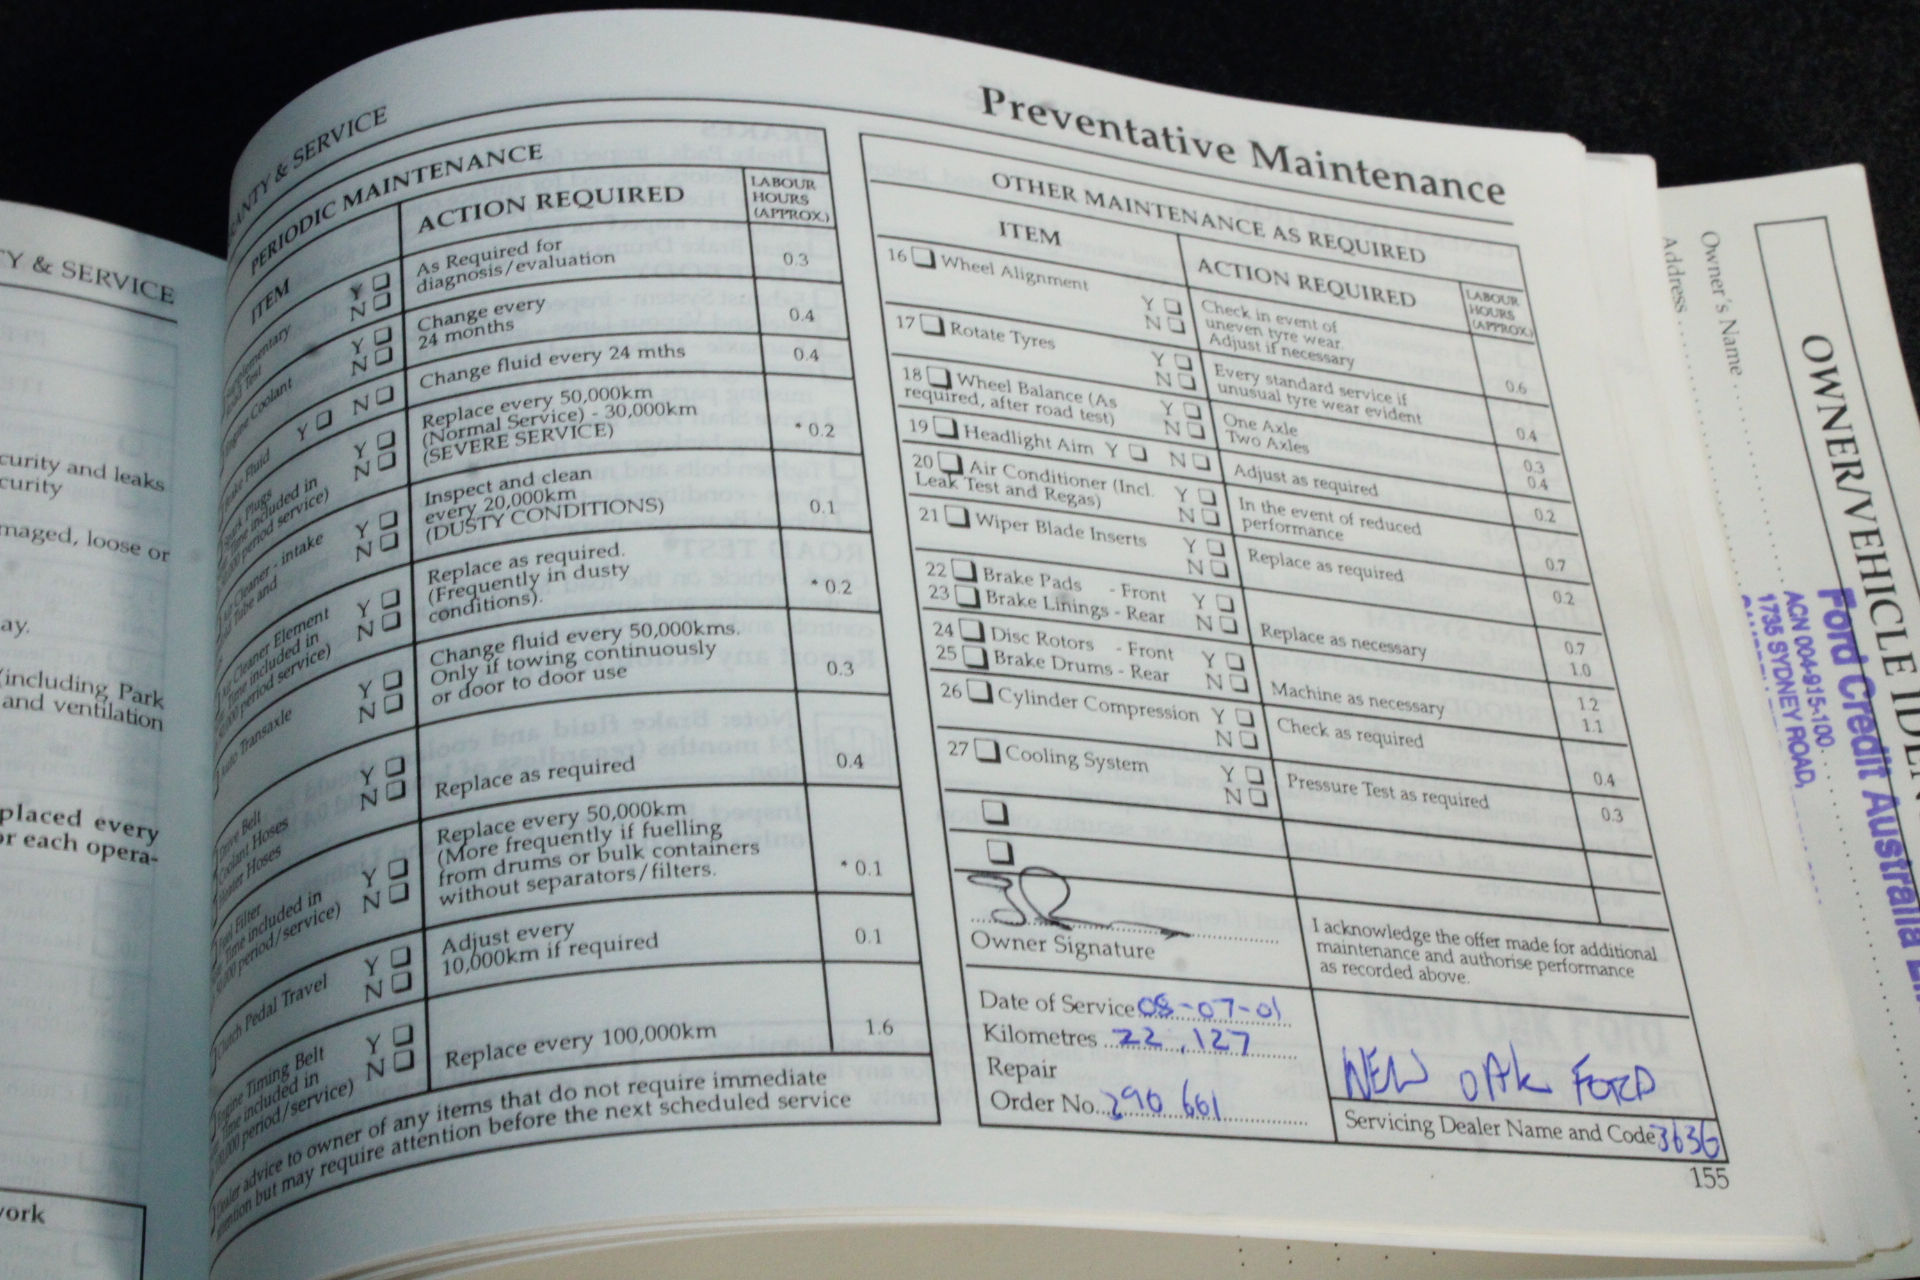 Y & SERVICE
curity and leaks
curity
maged, loose or
ay.
(including Park
and ventilation
placed every
or each opera-
work
RANTY & SERVICE
Preventative Maintenance
PERIODIC MAINTENANCE
ITEM
ACTION REQUIRED
LABOUR
HOURS
(APPROX.)
Y
N
As Required for
diagnosis/evaluation
0.3
Engine Coolant
Y
N
Change every
24 months
0.4
Brake Fluid Y N
Change fluid every 24 mths
0.4
Spark Plugs
Time included in
service)
Y
N
Replace every 50,000km
(Normal Service) - 30,000km
(SEVERE SERVICE)
* 0.2
Air Cleaner - intake
Tube and
Y
N
Inspect and clean
every 20,000km
(DUSTY CONDITIONS)
0.1
Air Cleaner Element
Time included in
period service)
Y
N
Replace as required.
(Frequently in dusty
conditions).
* 0.2
Auto Transaxle
Y
N
Change fluid every 50,000kms.
Only if towing continuously
or door to door use
0.3
Drive Belt
Coolant Hoses
Heater Hoses
Y
N
Replace as required
0.4
Fuel Filter
Time included in
period/service)
Y
N
Replace every 50,000km
(More frequently if fuelling
from drums or bulk containers
without separators/filters.
* 0.1
Clutch Pedal Travel
Y
N
Adjust every
10,000km if required
0.1
Engine Timing Belt
Time included in
100,000 period/service)
Y
N
Replace every 100,000km
1.6
Dealer advice to owner of any items that do not require immediate
attention but may require attention before the next scheduled service
OTHER MAINTENANCE AS REQUIRED
ITEM
ACTION REQUIRED
LABOUR
HOURS
(APPROX)
16 Wheel Alignment
Y
N
Check in event of
uneven tyre wear.
Adjust if necessary
0.6
17 Rotate Tyres
Y
N
Every standard service if
unusual tyre wear evident
0.4
18 Wheel Balance (As
required, after road test)
Y
N
One Axle
Two Axles
0.3
0.4
19 Headlight Aim Y N
Adjust as required
0.2
20 Air Conditioner (Incl.
Leak Test and Regas)
Y
N
In the event of reduced
performance
0.7
21 Wiper Blade Inserts
Y
N
Replace as required
0.2
22 Brake Pads - Front
23 Brake Linings - Rear
Y
N
Replace as necessary
0.7
1.0
24 Disc Rotors - Front
25 Brake Drums - Rear
Y
N
Machine as necessary
1.2
1.1
26 Cylinder Compression
Y
N
Check as required
0.4
27 Cooling System
Y
N
Pressure Test as required
0.3
Owner Signature
I acknowledge the offer made for additional
maintenance and authorise performance
as recorded above.
Date of Service 08-07-01
Kilometres 22,127
Repair
Order No. 290 601
NEW OAK FORD
Servicing Dealer Name and Code 3636
155
OWNER/VEHICLE IDEN
Owner's Name
Address
Ford Credit Australia
ACN 004-915-100.
1735 SYDNEY ROAD,